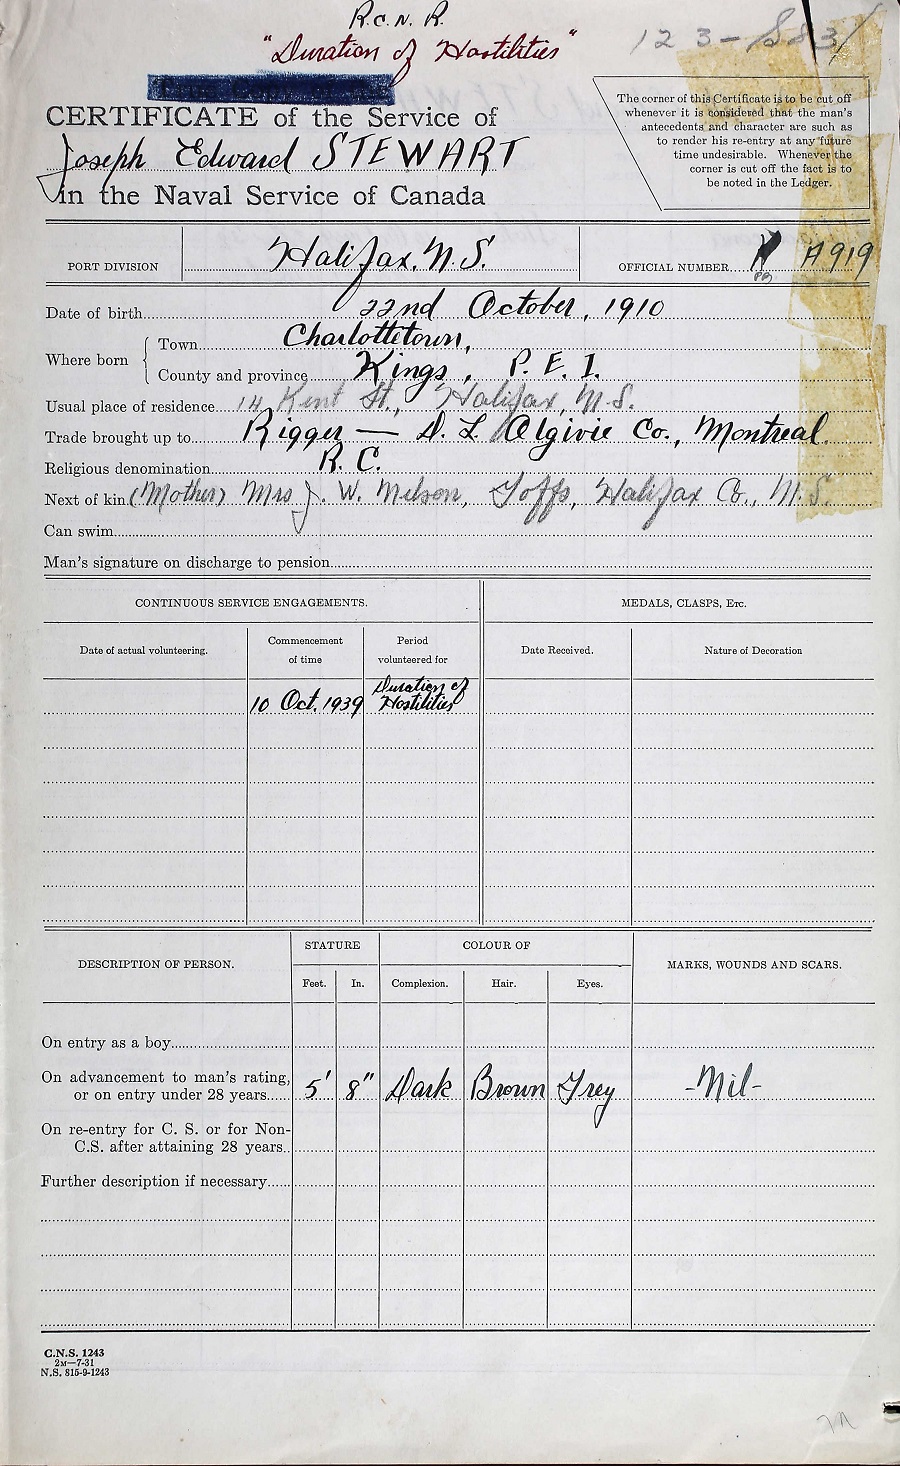 R.C.N.R.
"Duration of Hostilities"
123-
CERTIFICATE of the Service of
Joseph Edward STEWART
in the Naval Service of Canada
The corner of this Certificate is to be cut off
whenever it is considered that the man's
antecedents and character are such as
to render his re-entry at any future
time undesirable. Whenever the
corner is cut off the fact is to
be noted in the Ledger.
PORT DIVISION Halifax, N.S. OFFICIAL NUMBER A919
Date of birth 22nd October, 1910
Where born
Town Charlottetown,
County and province Kings, P.E.I.
Usual place of residence 14 Kent St., Halifax, N.S.
Trade brought up to Rigger — D. L Olgivie Co., Montreal
Religious denomination R.C.
Next of kin (Mother) Mrs J. W. Nelson, Goffs, Halifax Co., N.S.
Can swim
Man's signature on discharge to pension
CONTINUOUS SERVICE ENGAGEMENTS. MEDALS, CLASPS, Etc.
Date of actual volunteering. Commencement of time Period volunteered for Date Received. Nature of Decoration
10 Oct. 1939 Duration of Hostilities
DESCRIPTION OF PERSON. STATURE COLOUR OF MARKS, WOUNDS AND SCARS.
Feet. In. Complexion. Hair. Eyes.
On entry as a boy
On advancement to man's rating,
or on entry under 28 years 5' 8" Dark Brown Grey -Nil-
On re-entry for C. S. or for Non-
C.S. after attaining 28 years
Further description if necessary
C.N.S. 1243
2M—7-31
N.S. 815-9-1243